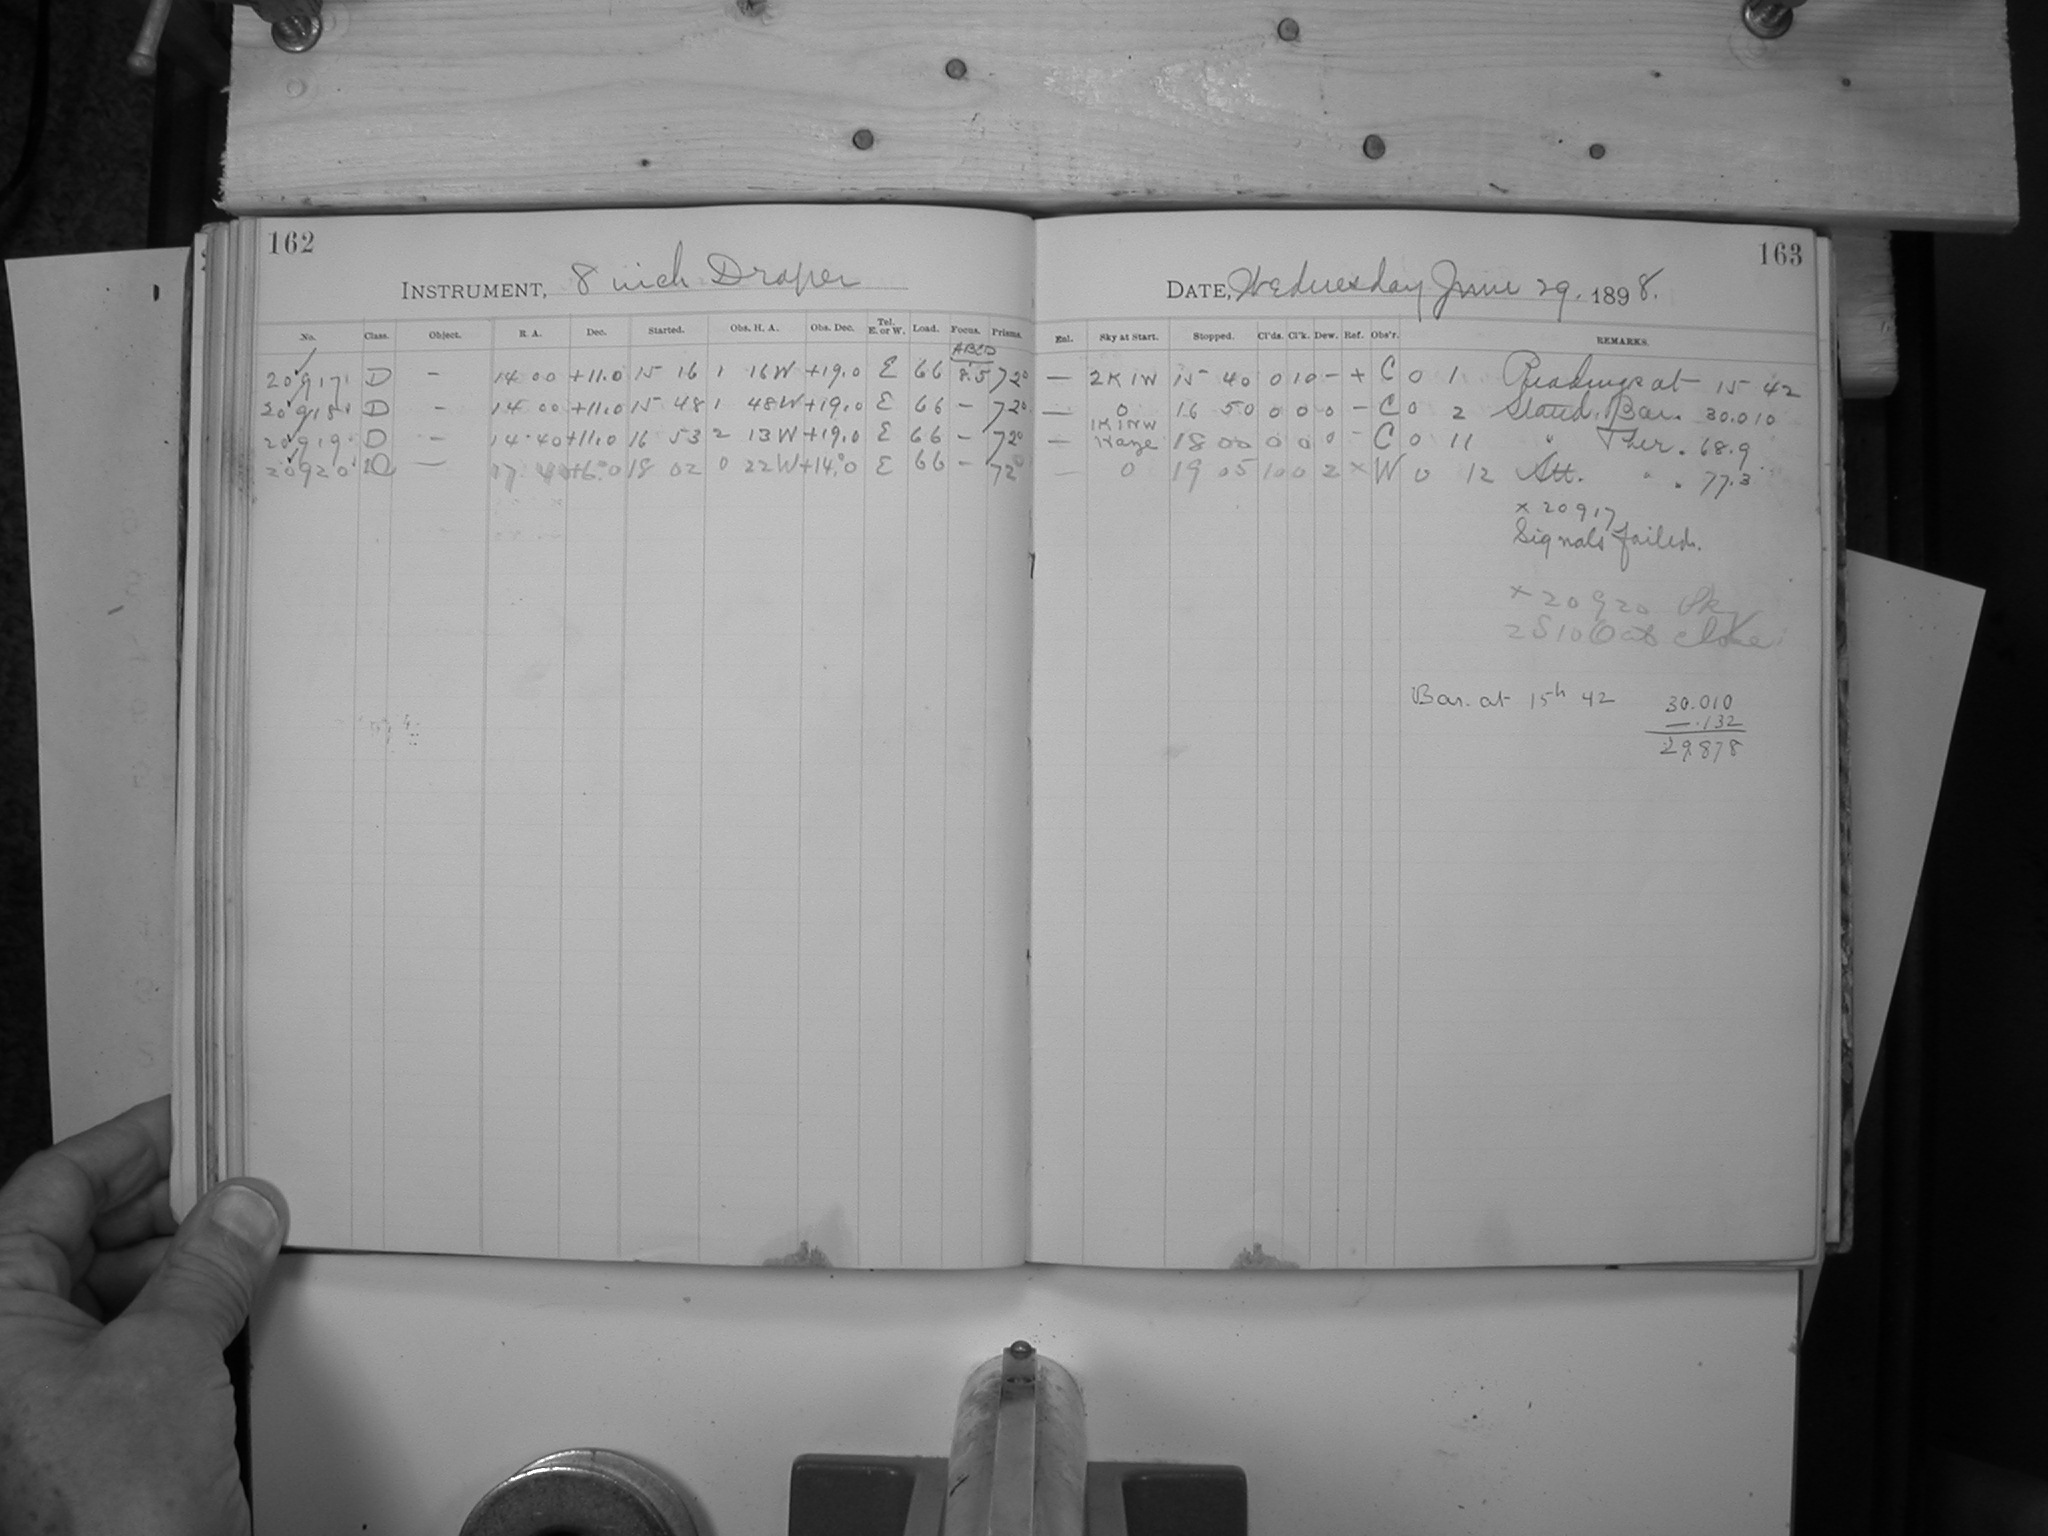 162
INSTRUMENT, 8 inch Draper
No. Class. Object. R. A. Dec. Started. Obs. H. A. Obs. Dec. Tel. E. or W. Load. Focus. Prisms.
ABCD
20917 D — 14 00 +11.0 15 16 1 16 W +19.0 E 66 8.5 72°
20918 D — 14 00 +11.0 15 48 1 48 W +19.0 E 66 — 72°
20919 D — 14 40 +11.0 16 53 2 13 W +19.0 E 66 — 72°
20920 D — 17 40 +6.0 18 02 0 22 W +14.0 E 66 — 72°
163
DATE, Wednesday June 29. 1898.
Enl. Sky at Start. Stopped. Cl'ds. Cl'k. Dew. Ref. Obs'r. REMARKS.
— 2K1W 15 40 0 10 — + C 0 1 Readings at 15 42
— 0 16 50 0 0 0 — C 0 2 Stand. Bar. 30.010
1K1NW
— Haze 18 00 0 0 0 — C 0 11 " Ther. 68.9
— 0 19 05 10 0 2 × W 0 12 Att. " . 77.3
× 20917
Signals failed.
× 20920 Sky
2S10 at close
Bar. at 15h 42 30.010
— .132
29.878